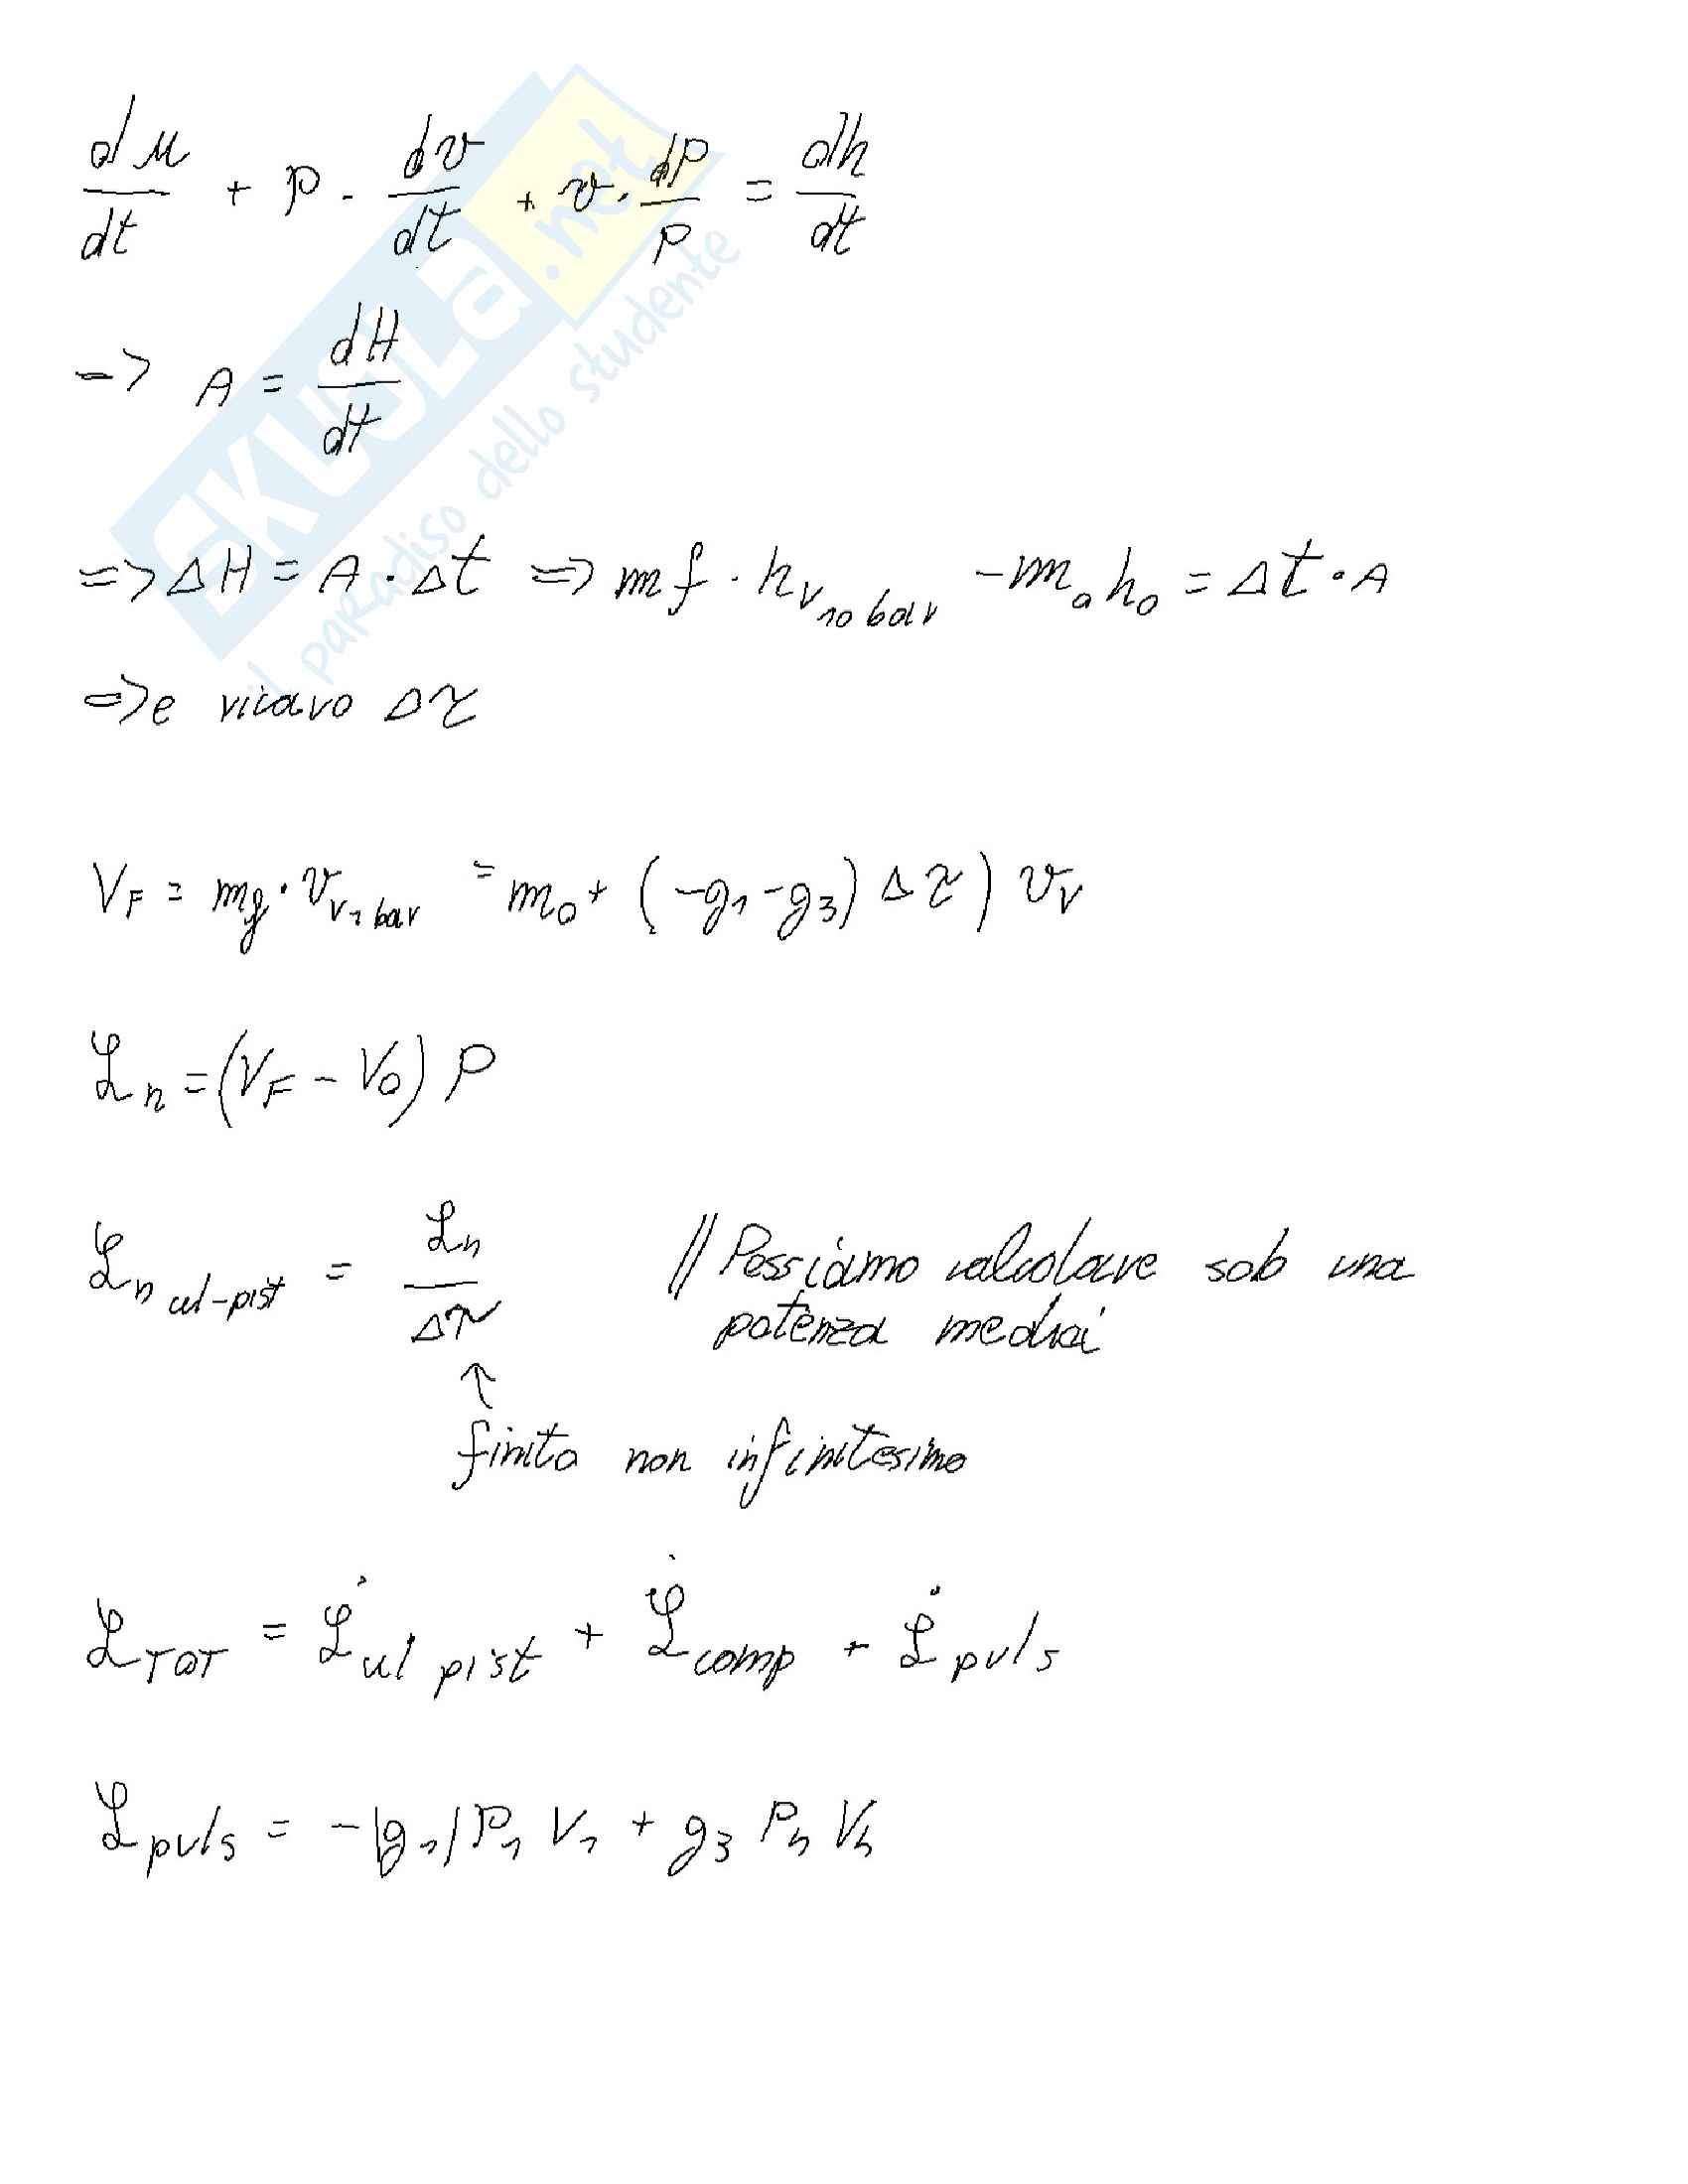 du/dt + p · dv/dt + v · dP/P = dh/dt
=> A = dH/dt
=> ΔH = A · Δt => mf · h_v10 bar - m_o h_o = Δt · A
=> e ricavo Δτ
V_F = m_g · v_v1 bar = m_o + (-g_1 - g_3) Δτ) v_v
ℒ_n = (V_F - V_0) P
ℒ_n cil-pist = ℒ_n/Δτ // Possiamo calcolare solo una
potenza media
↑
finito non infinitesimo
ℒ_TOT = ℒ̇_cil pist + ℒ̇_comp + ℒ̇_puls
ℒ_puls = -|g_1| P_1 V_1 + g_3 P_h V_h
SKUOLA.net
il paradiso dello studente